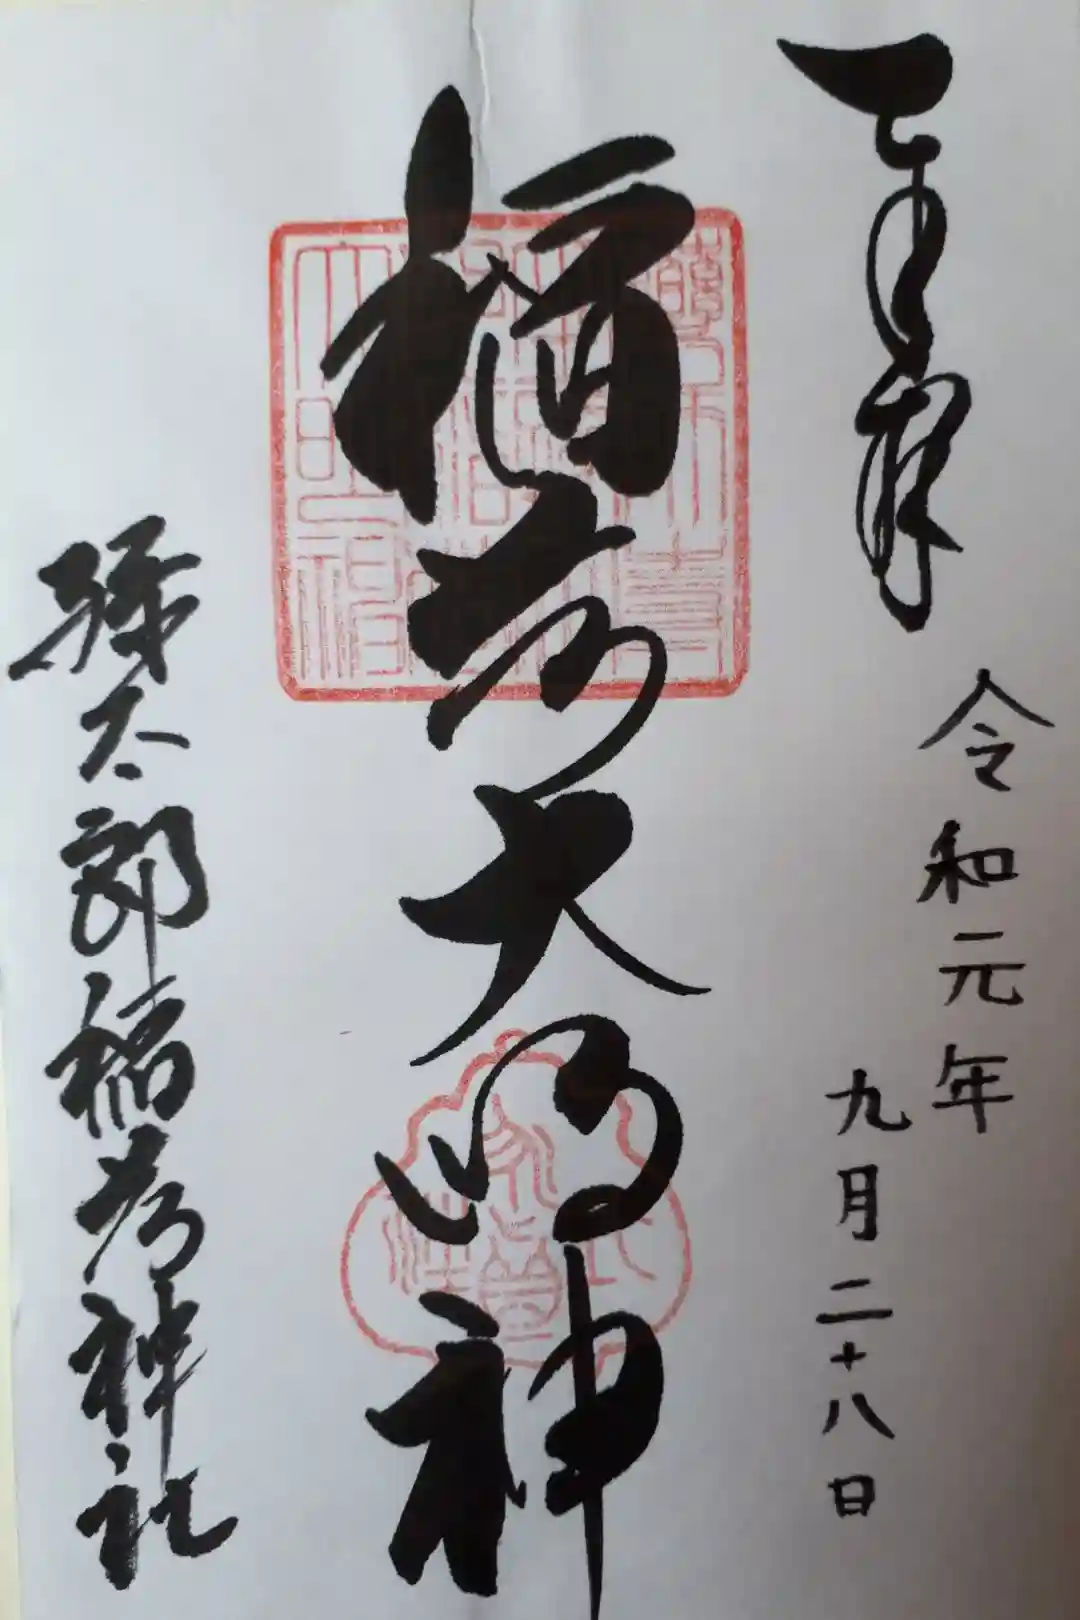 奉拝
令和元年
九月二十八日
稲荷大明神
孫太郎稲荷神社